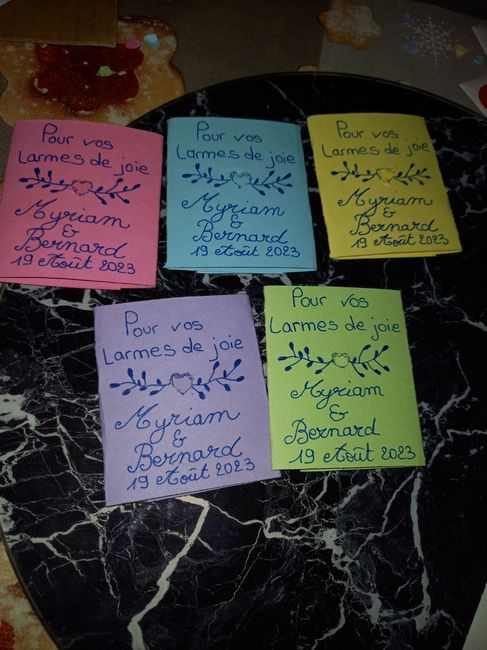 Pour vos
Larmes de joie
Myriam
&
Bernard
19 Août 2023
Pour vos
Larmes de joie
Myriam
&
Bernard
19 Août 2023
Pour vos
Larmes de joie
Myriam
&
Bernard
19 Août 2023
Pour vos
Larmes de joie
Myriam
&
Bernard
19 Août 2023
Pour vos
Larmes de joie
Myriam
&
Bernard
19 Août 2023